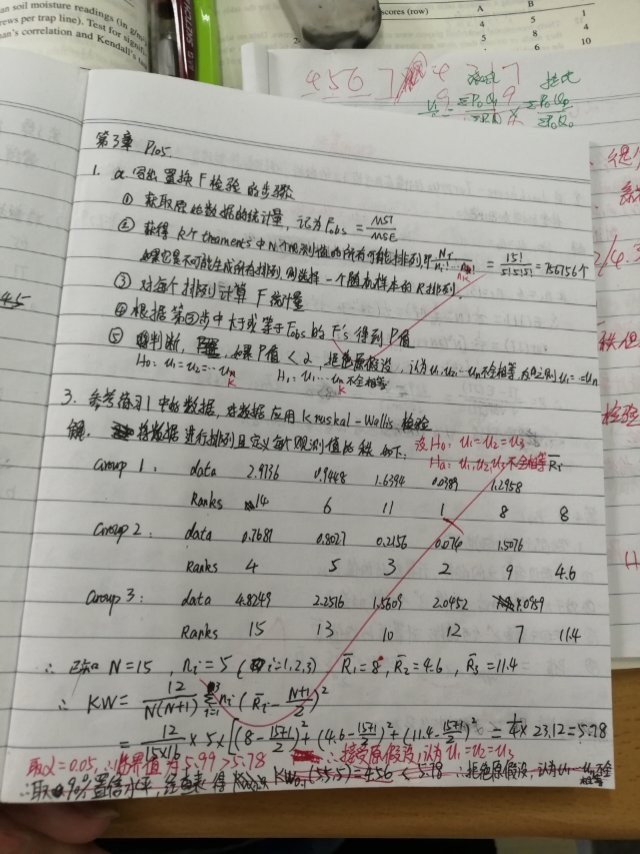 an soil moisture readings (in g/
rs per trap line). Test for signifi
an's correlation and Kendall's ta
scores (row) A B
4 5 1
5 8 4
6 10
4 5 6 7
第3章 P105.
1. a. 写出置换F检验的步骤
① 获取原始数据的统计量, 记为 Fobs = MST/MSE
② 获得K个treaments中N个观测值的所有可能排列即 N!/(n1!…nk!) = 15!/(5!5!5!) = 756756个
如果它是不可能生成所有排列, 则选择一个随机样本的R排列.
③ 对每个排列计算F统计量
④ 根据第③步中大于或等于Fobs的F's得到P值
⑤ 判断, 如果P值<α, 拒绝原假设, 认为u1,u2…un不全相等, 反之则u1=…=un
H0: u1=u2=…un H1: u1…un不全相等
K K
3. 参考练习1中的数据, 对数据应用Kruskal-Wallis检验
解. 将数据进行排列且定义每个观测值的秩 如下: 设H0: u1=u2=u3
Ha: u1,u2,u3不全相等 R̄i
Group 1: data 2.9136 0.9448 1.6394 0.0389 1.2958
Ranks 14 6 11 1 8 8
Group 2: data 0.7681 0.8027 0.2156 0.074 1.5076
Ranks 4 5 3 2 9 4.6
Group 3: data 4.8249 2.2516 1.5609 2.0452 1.0959
Ranks 15 13 10 12 7 11.4
∴ 已知 N=15, ni=5 (i=1,2,3) R̄1=8, R̄2=4.6, R̄3=11.4
∴ KW = 12/(N(N+1)) Σ(i=1→3) ni (R̄i - (N+1)/2)²
= 12/(15×16) × 5 × [(8-(15+1)/2)² + (4.6-(15+1)/2)² + (11.4-(15+1)/2)²] = 1/4 × 23.12 = 5.78
取α=0.05, ∴临界值为5.99>5.78 ∴接受原假设, 认为u1=u2=u3
∴取90%置信水平, 经查表得 KW0.1(5,5,5)=4.56 < 5.78 ∴拒绝原假设, 认为u1…un不全相等